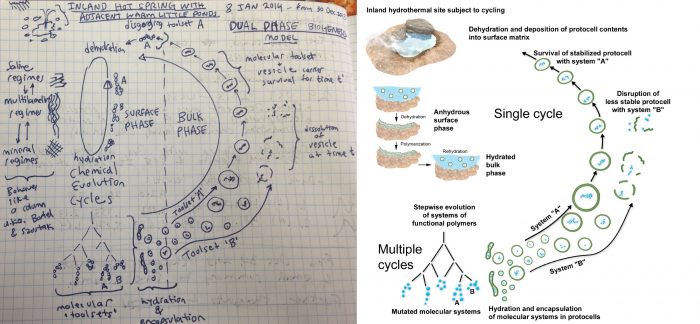 INLAND HOT SPRING WITH
ADJACENT WARM LITTLE PONDS
8 JAN 2014 - from 30 Dec 2013
DUAL PHASE BIOGENESIS
MODEL
disgorging toolset A
dehydration
A
molecular toolset
vesicle carrier
survival for time t'
saline
regimes
multilamellar
regimes
mineral
regimes
SURFACE
PHASE
BULK
PHASE
dissolution
of
vesicle
at time t'
hydration
Chemical
Evolution
Cycles
Behaves
like
a column
& Szostak
Toolset 'A'
Toolset 'B'
A
B
molecular
'toolsets'
hydration
&
encapsulation
Inland hydrothermal site subject to cycling
Dehydration and deposition of protocell contents
into surface matrix
Survival of stabilized protocell
with system "A"
Disruption of
less stable protocell
with system "B"
Single cycle
Dehydration
Anhydrous
surface
phase
Polymerization
Rehydration
Hydrated
bulk
phase
Stepwise evolution
of systems of
functional polymers
System "A"
System "B"
Multiple
cycles
A
B
Mutated molecular systems
Hydration and encapsulation
of molecular systems in protocells